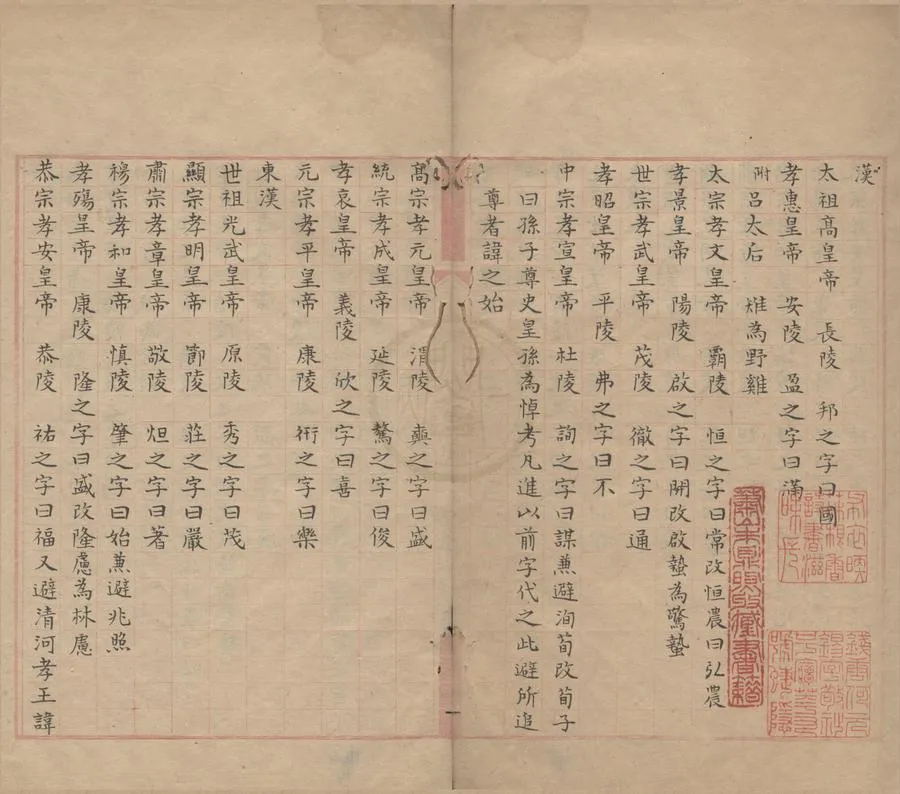 漢
太祖高皇帝 長陵 邦之字曰國
孝惠皇帝 安陵 盈之字曰滿
附呂太后 雉為野雞
太宗孝文皇帝 霸陵 恒之字曰常改恒農曰弘農
孝景皇帝 陽陵 啟之字曰開改啟蟄為驚蟄
世宗孝武皇帝 茂陵 徹之字曰通
孝昭皇帝 平陵 弗之字曰不
中宗孝宣皇帝 杜陵 詢之字曰謀兼避洵荀改荀子
曰孫子尊史皇孫為悼考凡進以前字代之此避所追
尊者諱之始
高宗孝元皇帝 渭陵 奭之字曰盛
統宗孝成皇帝 延陵 驁之字曰俊
孝哀皇帝 義陵 欣之字曰喜
元宗孝平皇帝 康陵 衎之字曰樂
東漢
世祖光武皇帝 原陵 秀之字曰茂
顯宗孝明皇帝 節陵 莊之字曰嚴
肅宗孝章皇帝 敬陵 炟之字曰著
穆宗孝和皇帝 慎陵 肇之字曰始兼避兆照
孝殤皇帝 康陵 隆之字曰盛改隆慮為林慮
恭宗孝安皇帝 恭陵 祐之字曰福又避清河孝王諱